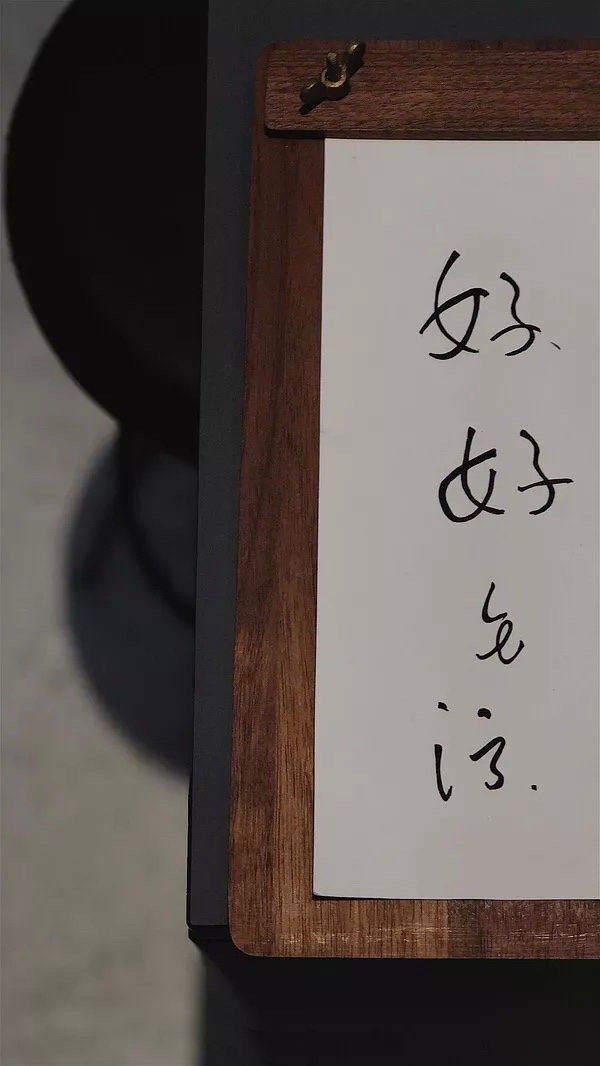 好好生活